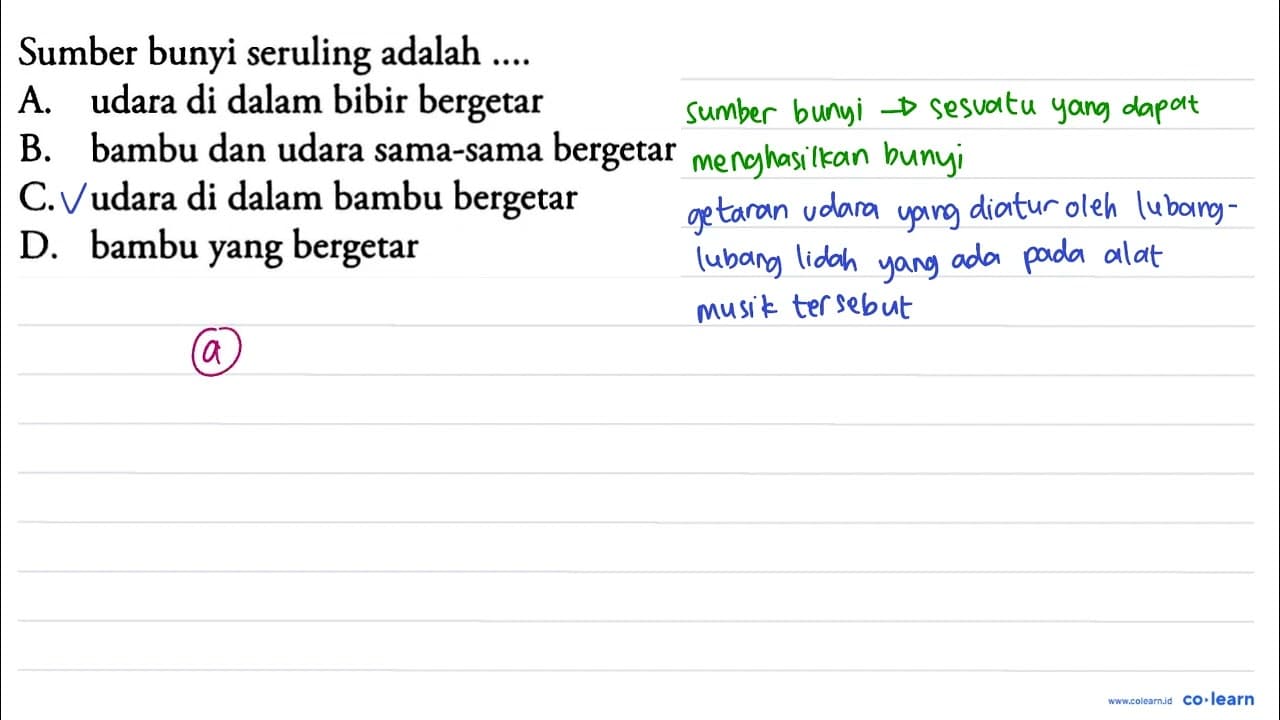 Sumber bunyi seruling adalah ....
A. udara di dalam bibir bergetar
B. bambu dan udara sama-sama bergetar
C. ✓ udara di dalam bambu bergetar
D. bambu yang bergetar
sumber bunyi → sesuatu yang dapat
menghasilkan bunyi
getaran udara yang diatur oleh lubang-
lubang lidah yang ada pada alat
musik tersebut
a
www.colearn.id co·learn